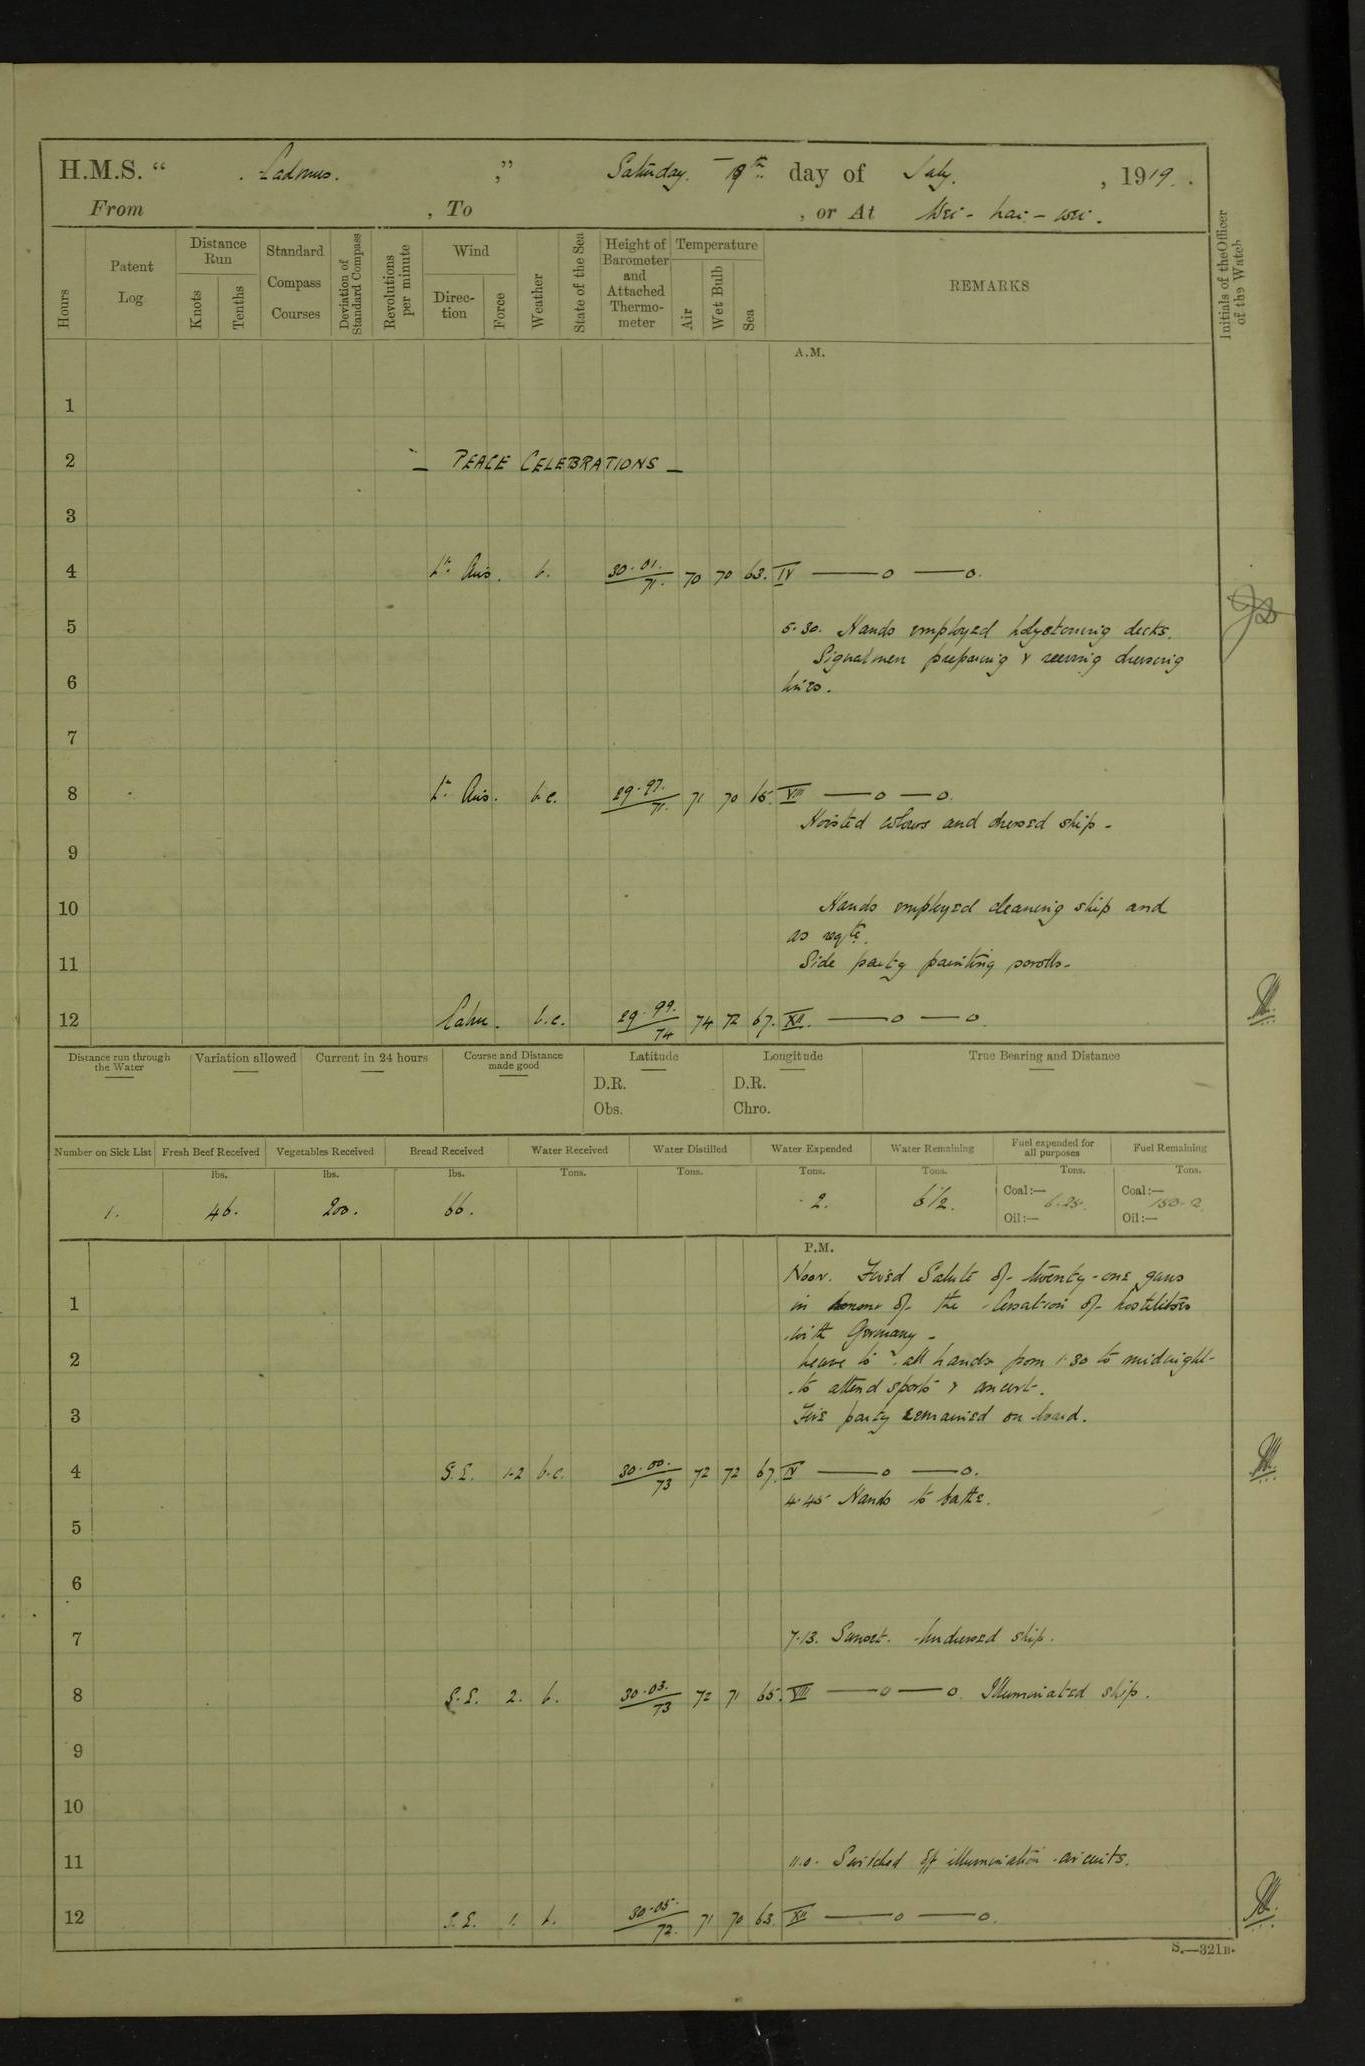 H.M.S. “ Cadmus. ,” Saturday. 19th day of July. , 1919.
From , To , or At Wei-hai-wei.
Hours
Patent Log
Distance Run
Knots
Tenths
Standard Compass Courses
Deviation of Standard Compass
Revolutions per minute
Wind
Direction
Force
Weather
State of the Sea
Height of Barometer and Attached Thermometer
Temperature
Air
Wet Bulb
Sea
REMARKS
Initials of the Officer of the Watch
A.M.
1
2 — PEACE CELEBRATIONS —
3
4 Lt. Airs. b. 30.01. 71. 70 70 63. IV —o —o.
5 5.30. Hands employed holystoning decks.
Signalmen preparing & reeving dressing
6 lines.
7
8 Lt. Airs. b.c. 29.97. 71. 71 70 65. VIII —o —o.
Hoisted colours and dressed ship-
9
10 Hands employed cleaning ship and
as reqte.
11 Side party painting scrolls-
12 Calm. b.c. 29.99. 74 74 72 67. XII. —o —o
Distance run through the Water
Variation allowed
Current in 24 hours
Course and Distance made good
Latitude
D.R.
Obs.
Longitude
D.R.
Chro.
True Bearing and Distance
Number on Sick List
Fresh Beef Received
Vegetables Received
Bread Received
Water Received
Water Distilled
Water Expended
Water Remaining
Fuel expended for all purposes
Fuel Remaining
lbs. lbs. lbs. Tons. Tons. Tons. Tons. Tons. Tons.
1. 46. 200. 66. 2. 6½. Coal:— 6.25. Coal:—
Oil:— Oil:—
P.M.
Noon. Fired Salute of twenty-one guns
1 in honour of the Cessation of hostilities
with Germany -
2 Leave to all hands from 1.30 to midnight-
to attend sports & concert.
3 Fire party remained on board.
4 S.E. 1-2 b.c. 30.00. 73 72 72 67. IV —o —o.
4.45 Hands to bathe.
5
6
7 7.13. Sunset. Undressed ship.
8 S.E. 2. b. 30.03. 73 72 71 65. VIII —o —o. Illuminated ship.
9
10
11 11.0. Switched off illumination circuits.
12 S.E. 1. b. 30.05. 72. 71 70 63. XII —o —o.
S.—321B.